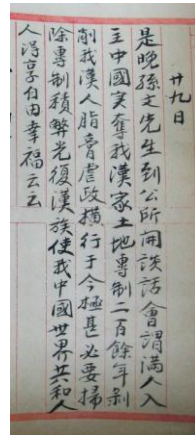 廿九日
是晚孫文先生到公所開談話會謂滿人入
主中國实奪我漢家土地專制二百餘年剥
削我漢人脂膏虐政橫行于今極甚必要掃
除專制積弊光復漢族使我中國世界共和人
人得享自由幸福云云